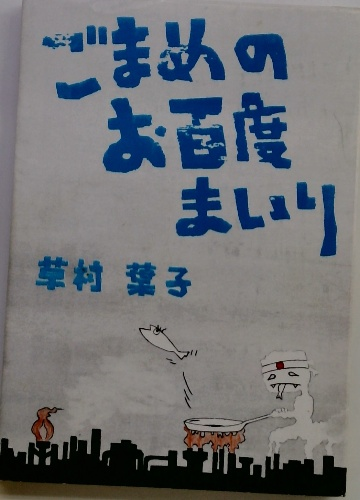 ごまめの
お百度
まいり
草村 葉子